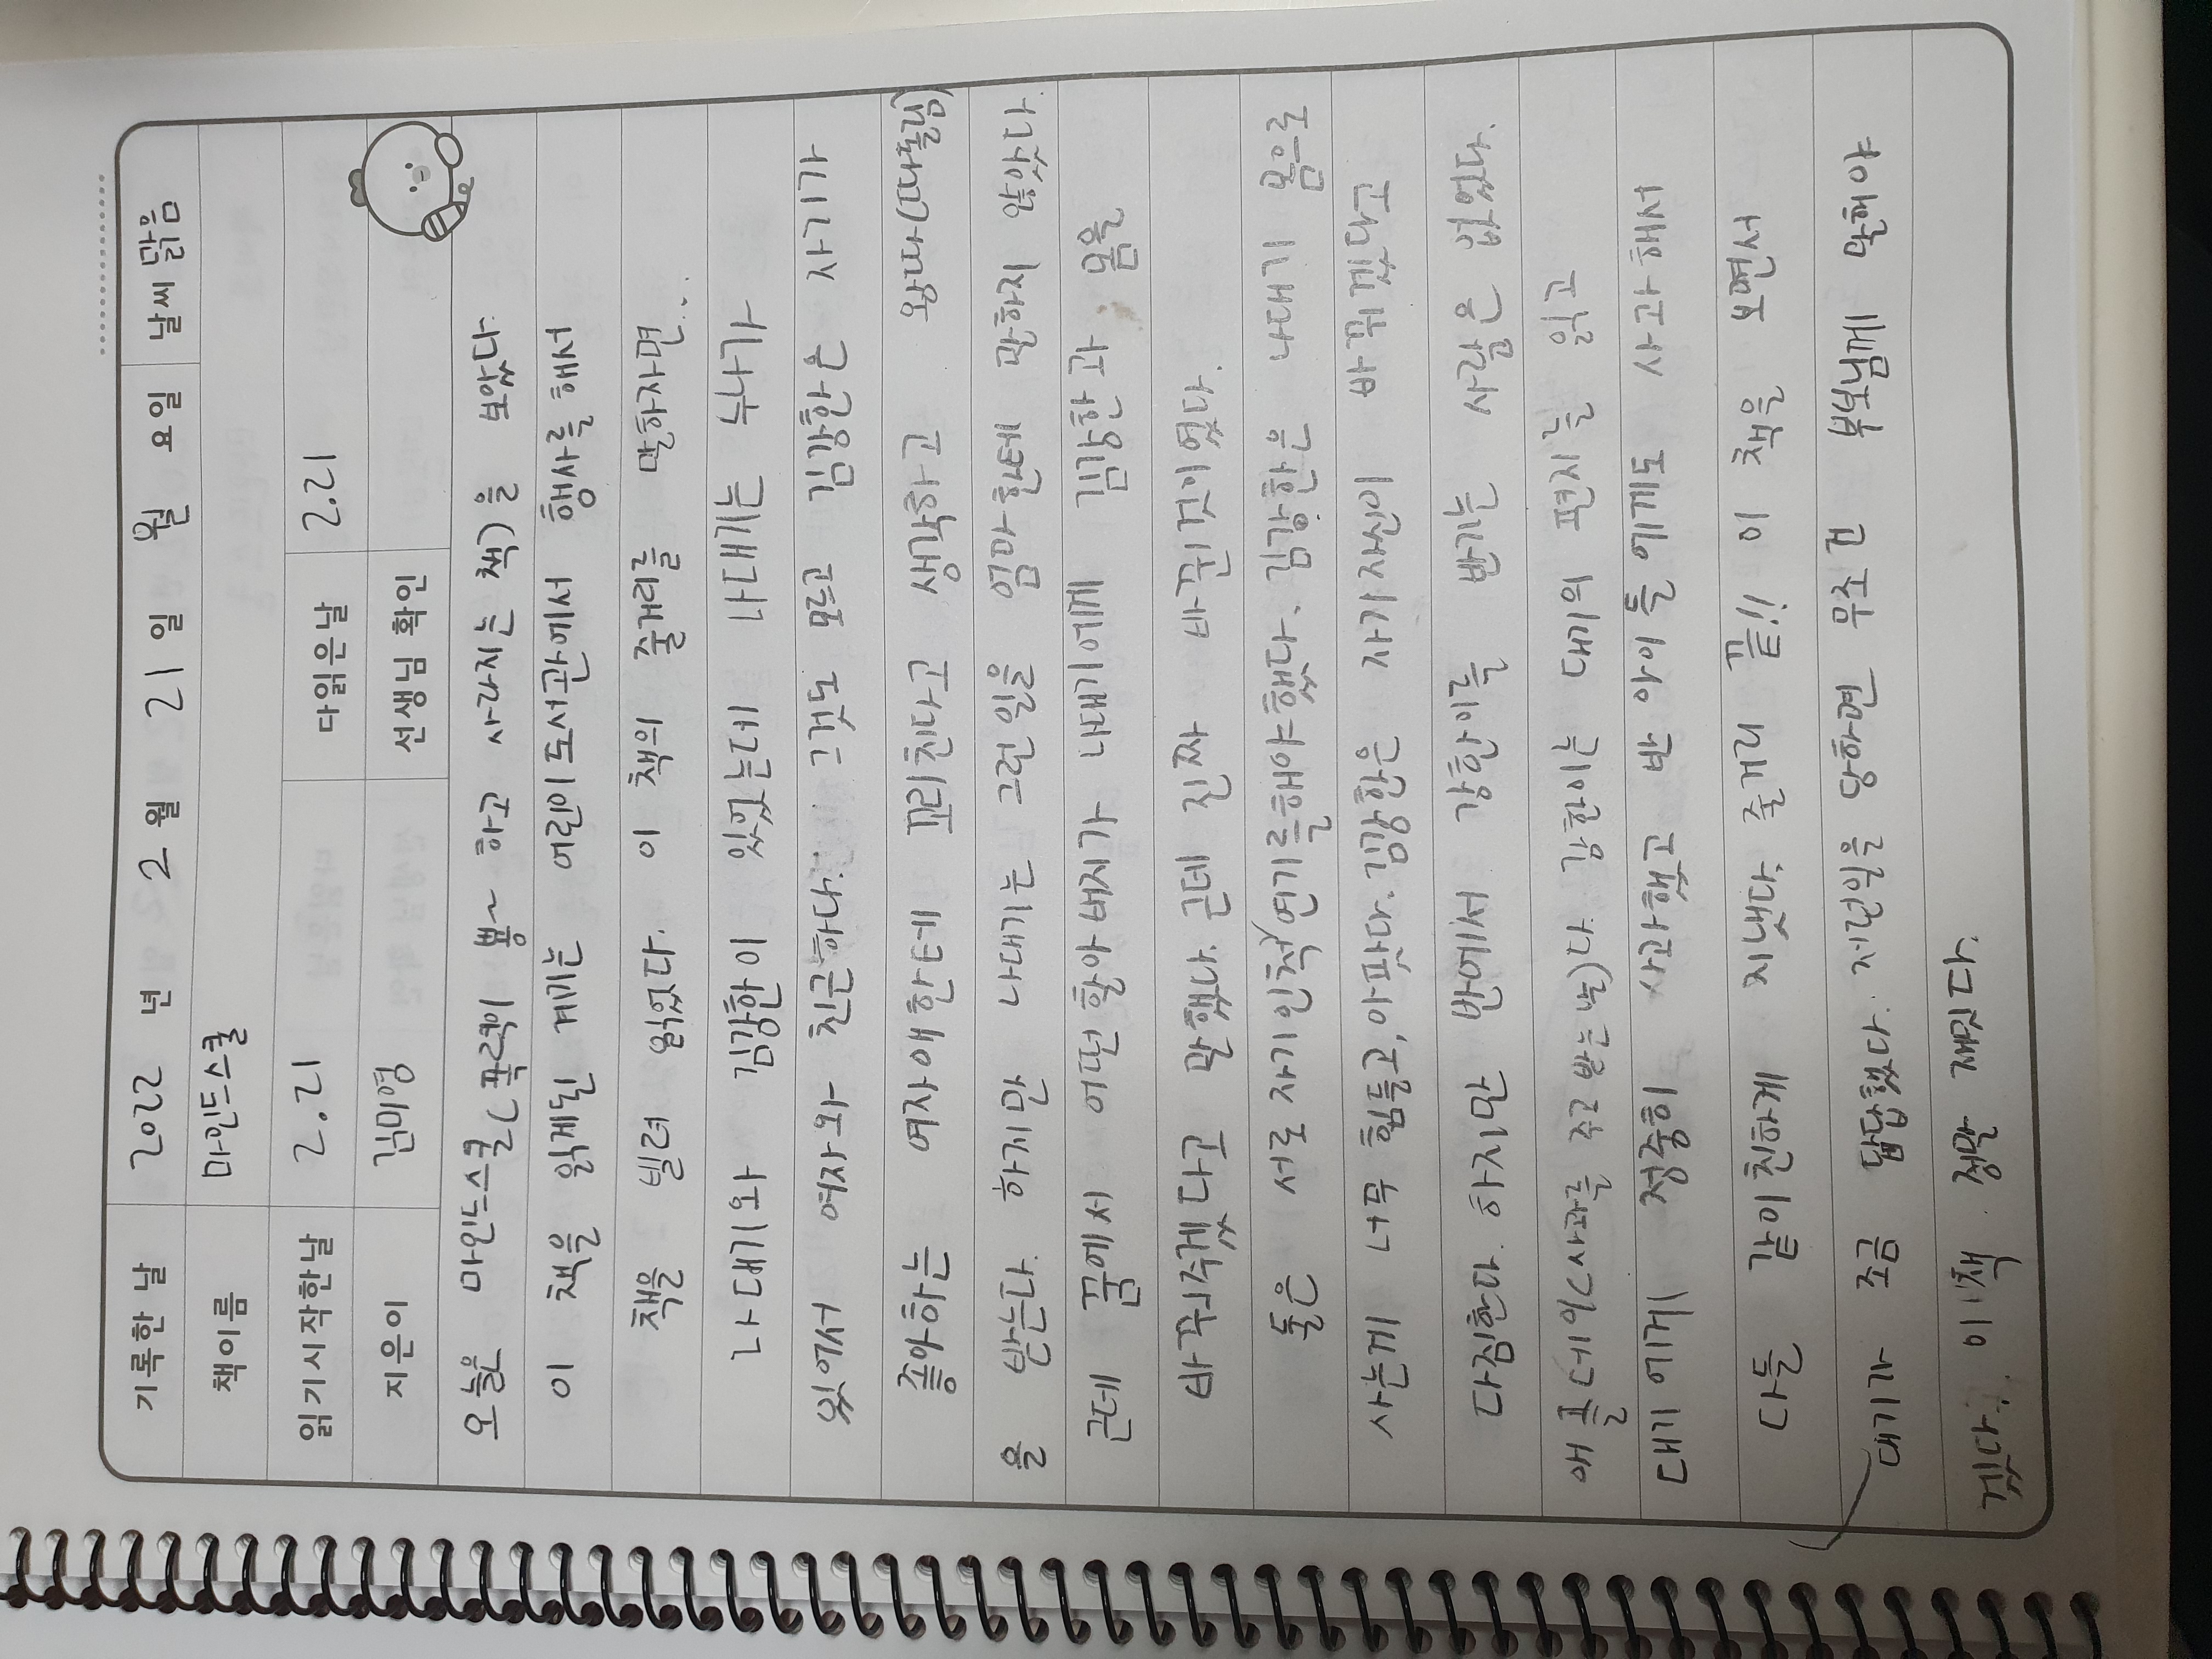 기록한 날 2022 년 2 월 21 일 월 요일 날씨 맑음
책이름 마인드스쿨
읽기시작한날 2.21 다읽은날 2.21
지은이 김미영 선생님 확인
오늘은 마인드스쿨(폭력이 뿅~ 하고 사라지는 책)을 보았다.
이 책을 읽게된 계기는 어린이도서관에서 행사를 해서
책을 빌려 읽었다. 이 책의 줄거리를 말하자면...
나대기와 김강한이 있었는데 나대기는 누나가
있어서 여자와 친근하다. 그것도 모르고 김강한은 자기가
좋아하는 여자애한테 꼬리친다고 생각하고 왕따(따돌림)
을 받는다. 하지만 나대기는 그런일을 엄마한테 말하지 않았다.
근데 꿈에서 어떤할아버지가 나대기에게 김강한과 몸을
바꿔주겠다고 말했다. 근데 진짜 바뀐것이였다.
둘은 서로자기인척 연기를해야했다. 김강한은 나대기 몸으로
사는게 너무 힘들고,아팟다. 김강한은 자기자신이 바뀌겠다고
다짐한다. 하지만 반에서 강한이를 반기는 사람은 없었다.
애플데이(사과를 주고받는날)다. 강한이는 대기의 편지를 읽고
대기에게 정중히 사과했고 반 아이들에게도 사과해서
다들 같이친하게 지냈다. 줄거리 끝!! 이 책을 보면서
대기가 조금 답답했다. 저런일을 당하면 무조건 부모님께 말해야
겠다. 이 책 정말 재밌다.